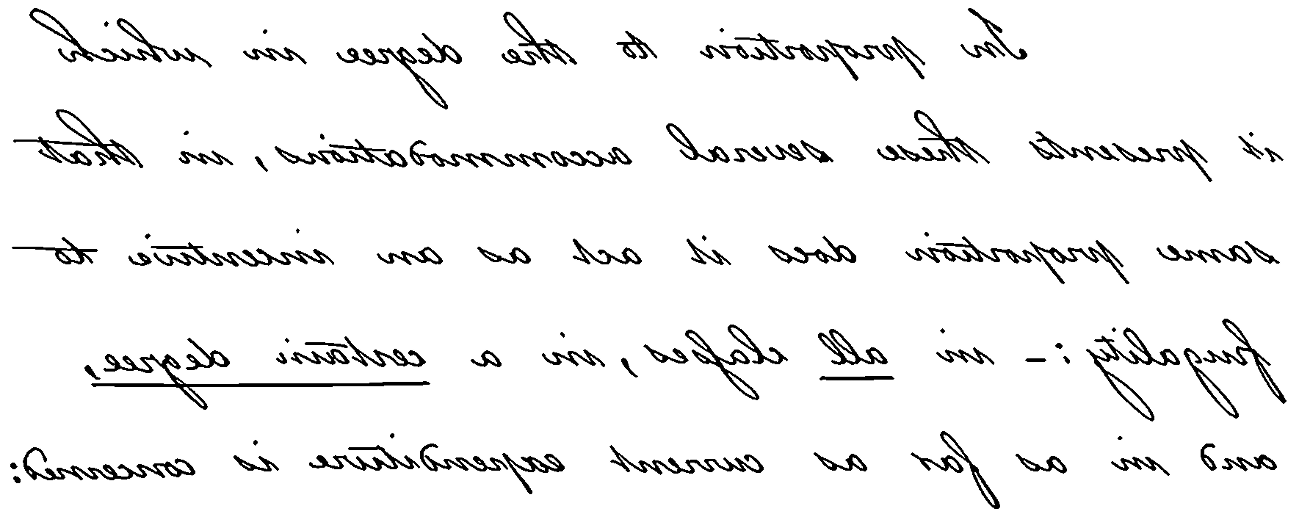 In proportion to the degree in which
it presents these several accommodations, in that
same proportion does it act as an incentive to
frugality:– in all claſses, in a certain degree,
and in as far as current expenditure is concerned: